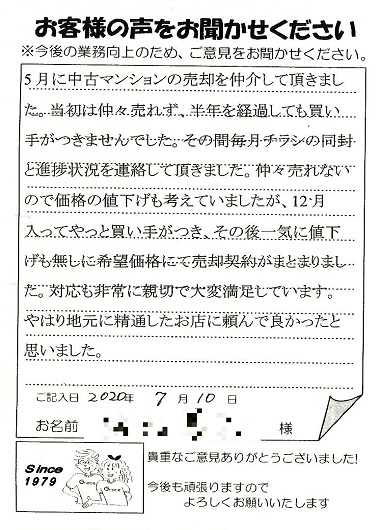 お客様の声をお聞かせください
※今後の業務向上のため、ご意見をお聞かせください。
5月に中古マンションの売却を仲介して頂きまし
た。当初は仲々売れず、半年を経過しても買い
手がつきませんでした。その間毎月チラシの同封
と進捗状況を連絡して頂きました。仲々売れない
ので価格の値下げも考えていましたが、12月
入ってやっと買い手がつき、その後一気に値下
げも無しに希望価格にて売却契約がまとまりまし
た。対応も非常に親切で大変満足しています。
やはり地元に精通したお店に頼んで良かったと
思いました。
ご記入日 2020年 7月10日
お名前 様
Since
1979
貴重なご意見ありがとうございました!
今後も頑張りますので
よろしくお願いいたします